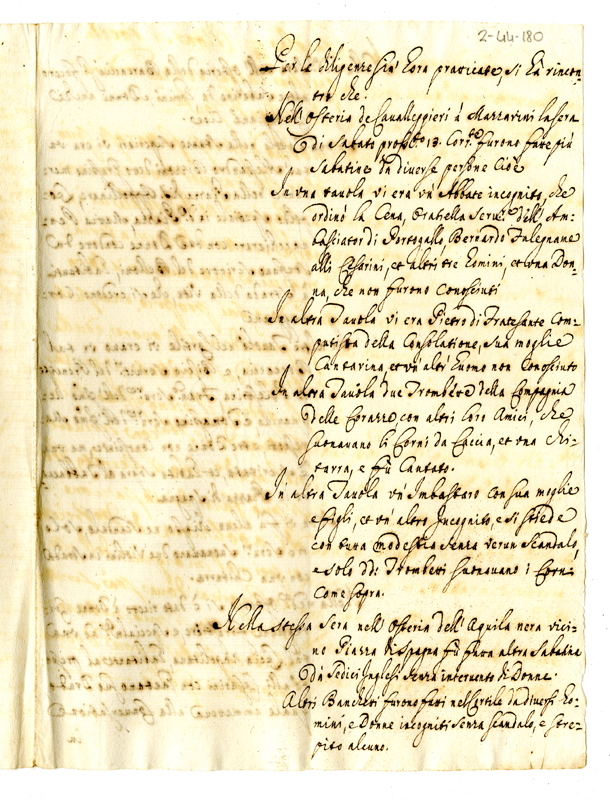 2-44-180
Per le diligenze sin' hora praticate, si hà rincon-
tro che:
Nell'Osteria de Cavalleggieri à Mazzarini la sera
di Sabato pross.º 13. Corr.te furono fatte più
Sabatine da diverse persone Cioè
In una tavola vi era un Abbate incognito, che
ordinò la Cena, Servre dell'Am-
basciator di Portogallo, Bernardo
alli Cesarini, et altri tre homini, et una Don-
na, che non furono conosciuti
In altra Tavola vi era Pietro di Fratesante Com-
putista della Consolatione, sua moglie
Cantarina, et un altr'huomo non Conosciuto
In altra Tavola due Trombetti della Compagnia
delle Corazze, con altri loro Amici, che
suonavano li Corni da Caccia, et una chi-
tarra, e fù Cantato.
In altra Tavola un Imbastaro con sua moglie
e figli, et un altro Incognito, e si stiede
con tutta modestia senza verun scandalo,
e solo dd: Trombetti suonavano i Corni
Come sopra.
Nella stessa sera nell'Osteria dell'Aquila nera vici-
no Piazza di Spagna fù fatta altra Sabatina
da Sedici Inglesi senza intervento di Donne.
Altri Bancheti furono fatti nel Cortile da diversi ho-
mini, e Donne incogniti senza scandalo, e stre-
pito alcuno.